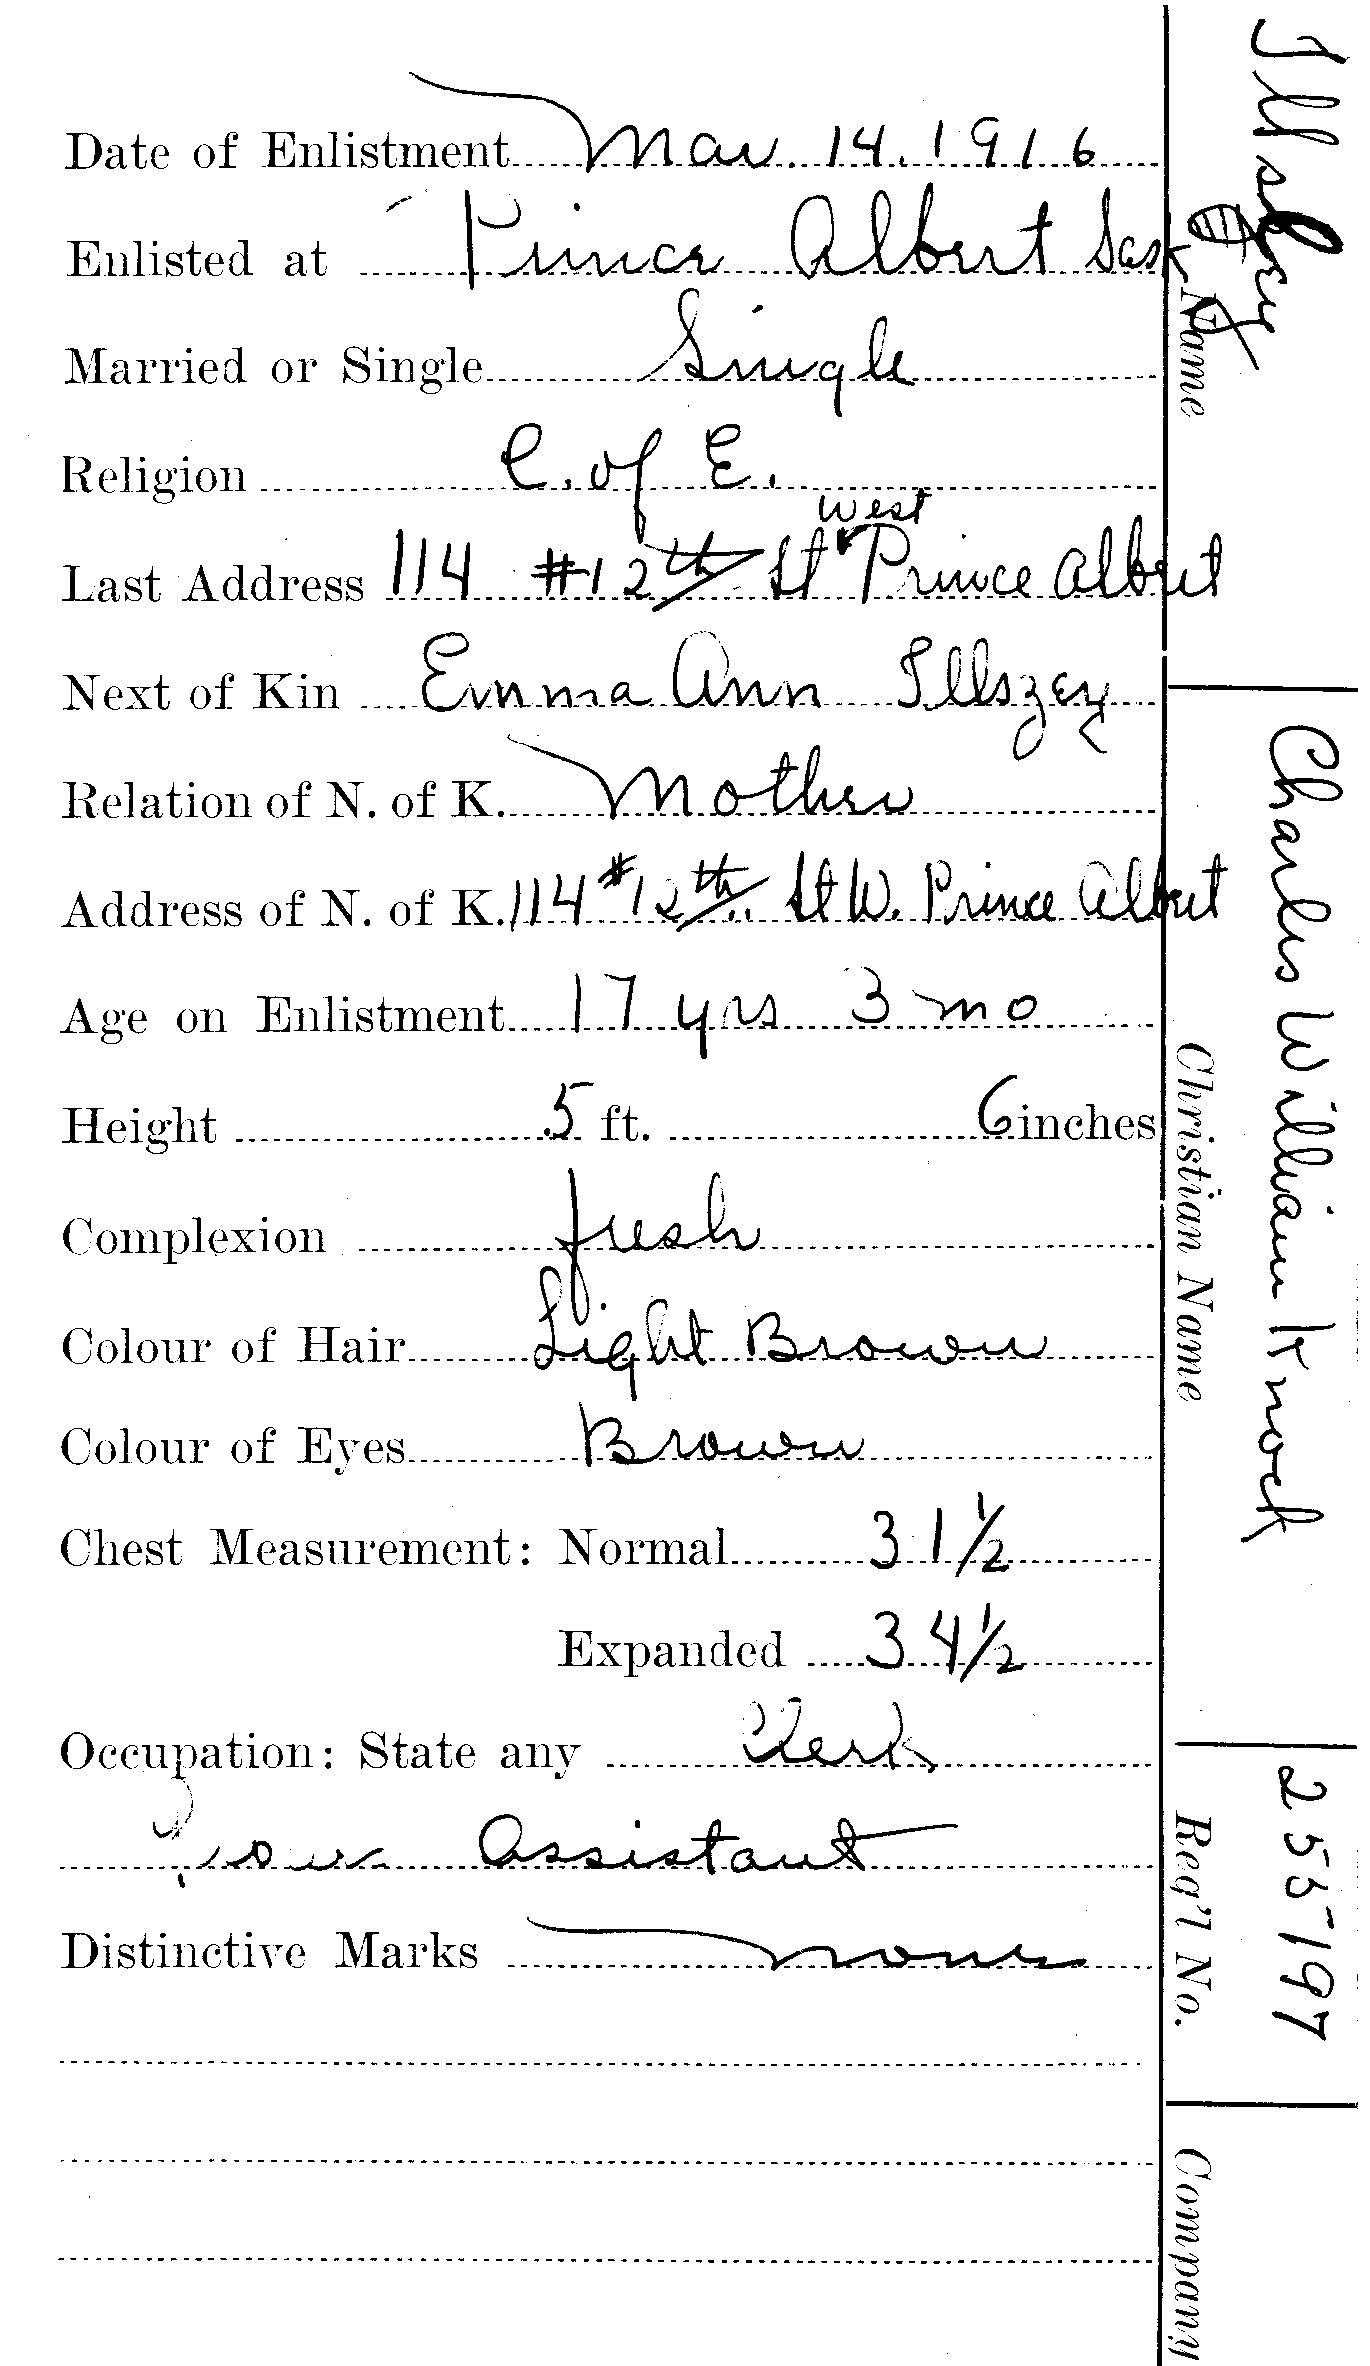 Date of Enlistment Mar. 14. 1916
Enlisted at Prince Albert Sask
Married or Single Single
Religion C. of E.
west
Last Address 114 #12th St Prince Albert
Next of Kin Emma Ann Illszey
Relation of N. of K. Mother
Address of N. of K. 114 #12th St W. Prince Albert
Age on Enlistment 17 yrs 3 mo
Height 5 ft. 6 inches
Complexion fresh
Colour of Hair Light Brown
Colour of Eyes Brown
Chest Measurement: Normal 31 1/2
Expanded 34 1/2
Occupation: State any Clerk
Assistant
Distinctive Marks none
Name
Charles William Knock
Christian Name
255197
Reg'l No.
Company